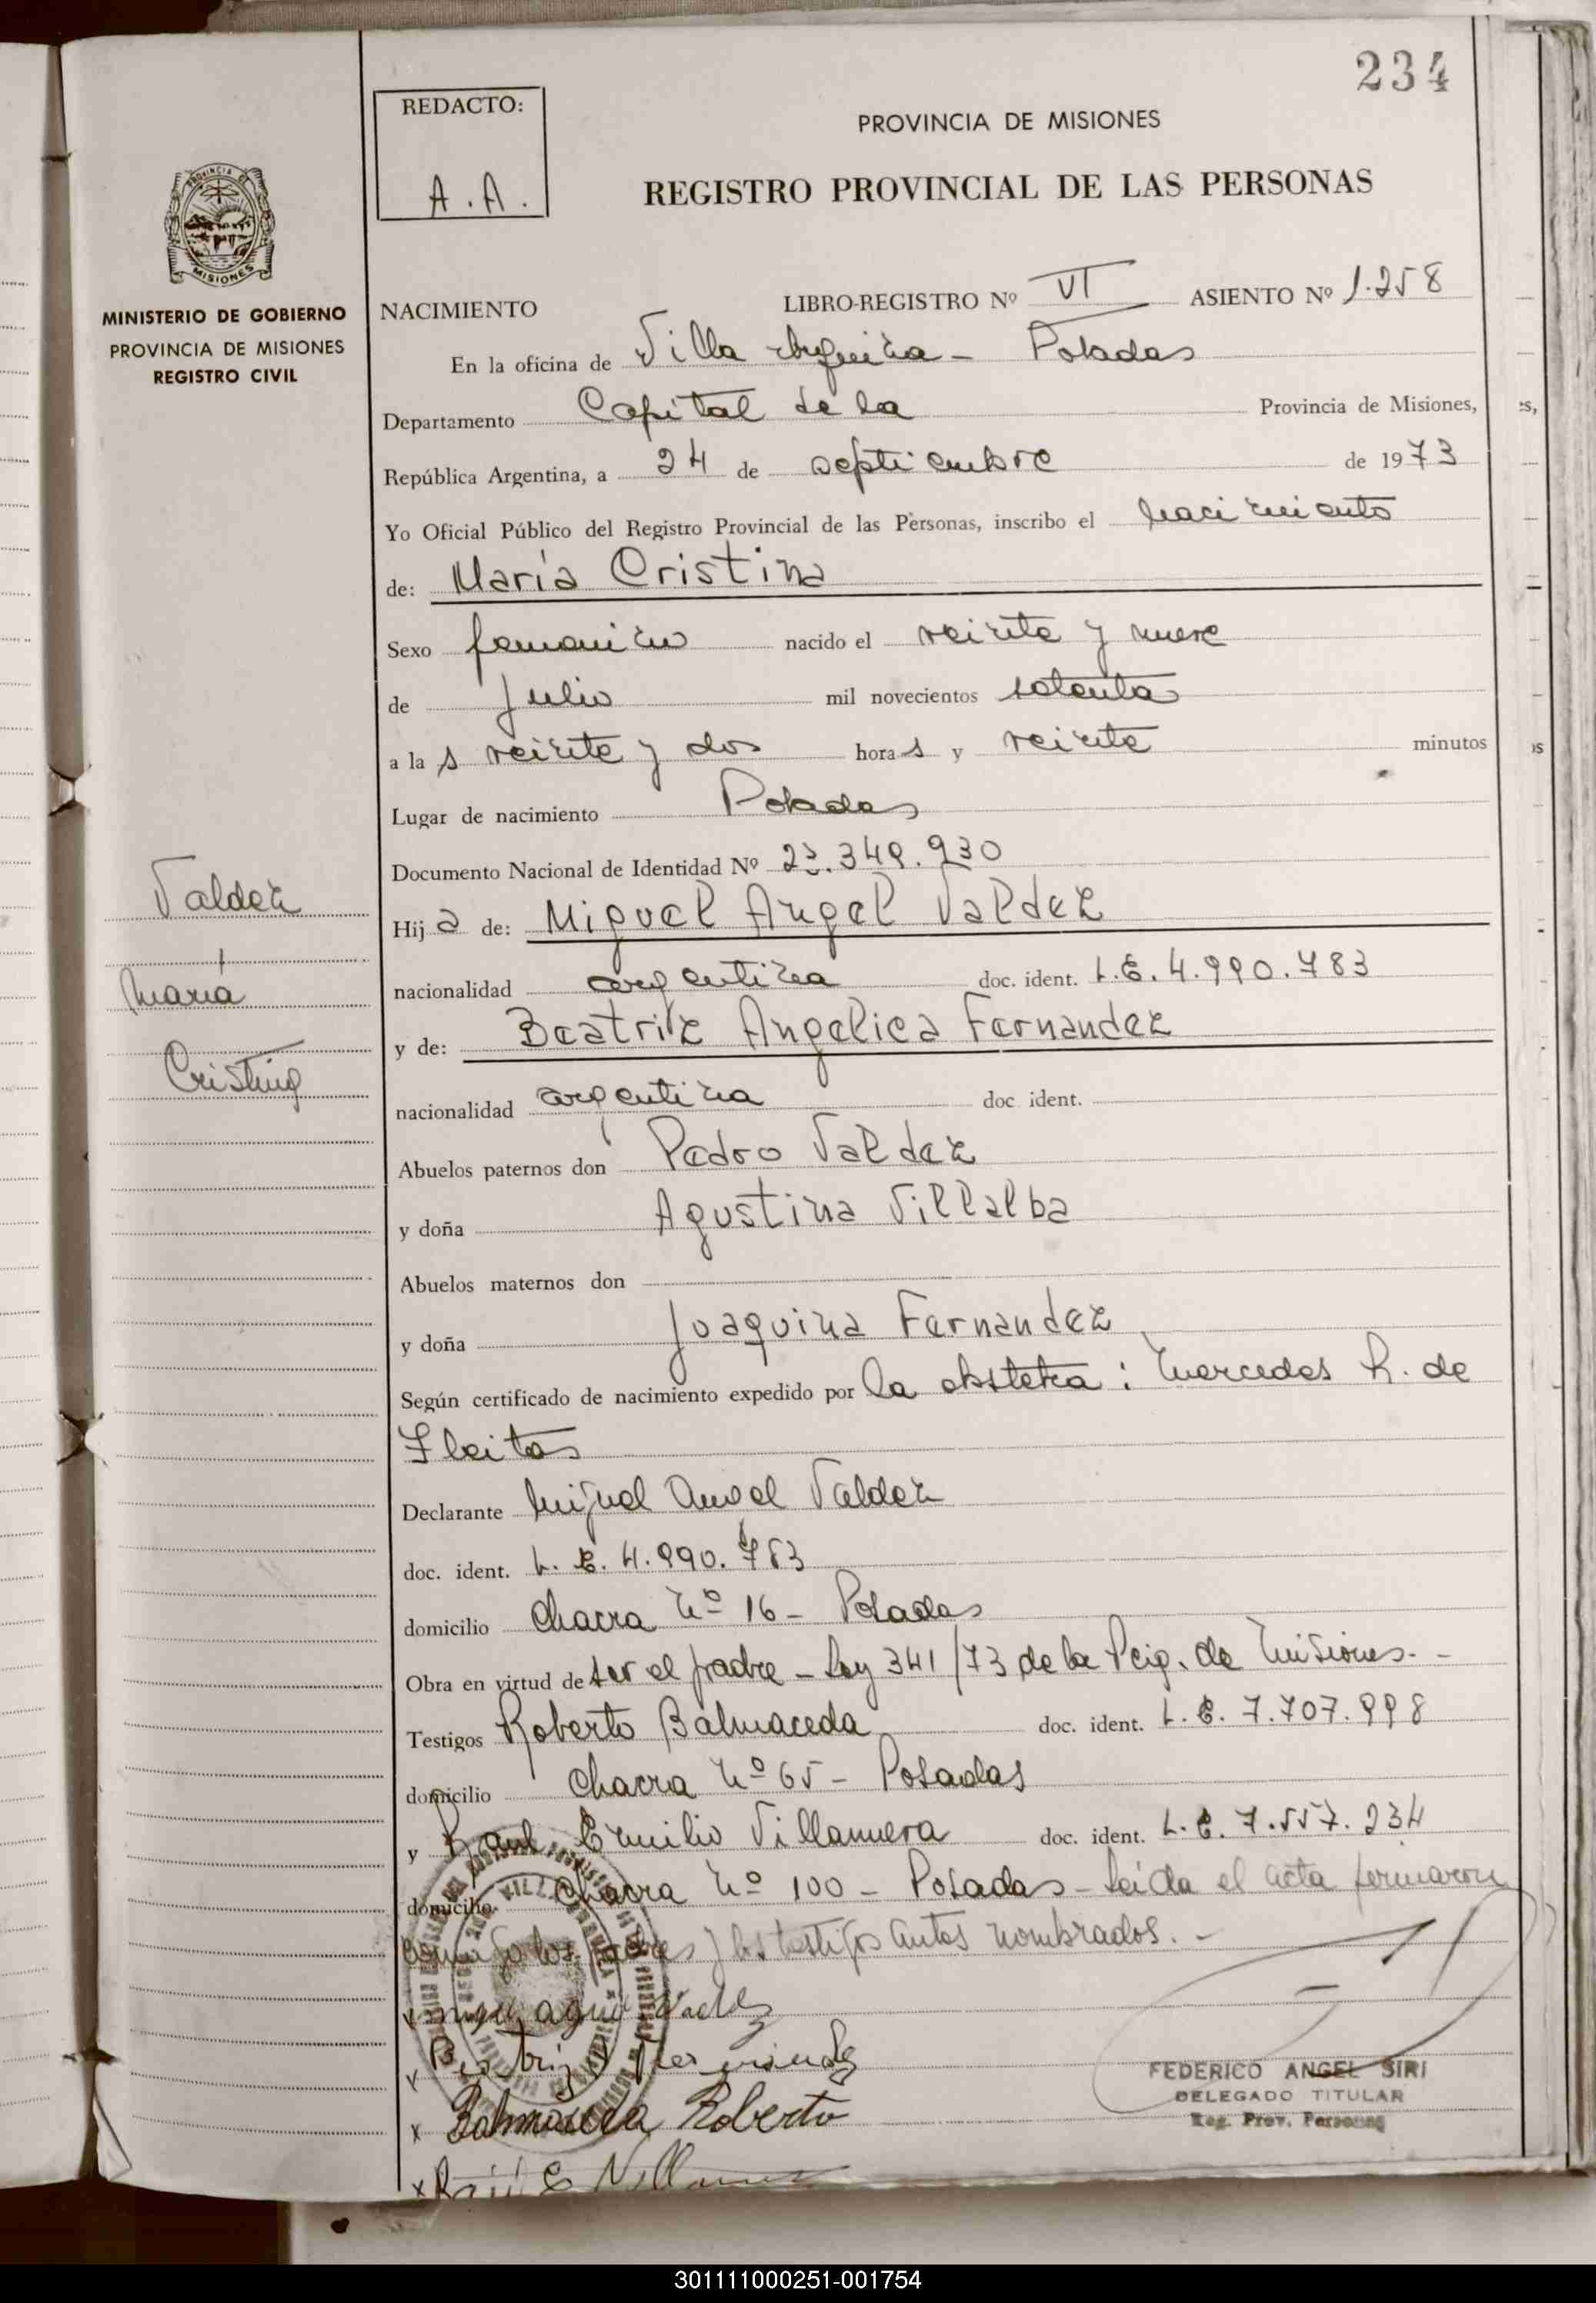 234
REDACTO:
A. A.
PROVINCIA DE MISIONES
REGISTRO PROVINCIAL DE LAS PERSONAS
PROVINCIA DE
MISIONES
MINISTERIO DE GOBIERNO
PROVINCIA DE MISIONES
REGISTRO CIVIL
NACIMIENTO LIBRO-REGISTRO Nº VI ASIENTO Nº 1.258
En la oficina de Villa Urquiza - Posadas
Departamento Capital de la Provincia de Misiones,
República Argentina, a 24 de septiembre de 1973
Yo Oficial Público del Registro Provincial de las Personas, inscribo el nacimiento
de: María Cristina
Sexo femenino nacido el veinte y nueve
de Julio mil novecientos setenta
a las veinte y dos horas y veinte minutos
Lugar de nacimiento Posadas
Documento Nacional de Identidad Nº 23.349.930
Valdez
María
Cristina
Hija de: Miguel Angel Valdez
nacionalidad argentina doc. ident. L.E. 4.990.783
y de: Beatriz Angelica Fernandez
nacionalidad argentina doc. ident.
Abuelos paternos don Pedro Valdez
y doña Agustina Villalba
Abuelos maternos don
y doña Joaquina Fernandez
Según certificado de nacimiento expedido por la obstetra: Mercedes R. de
Fleitas
Declarante Miguel Angel Valdez
doc. ident. L. E. 4.990.783
domicilio Chacra Nº 16 - Posadas
Obra en virtud de ser el padre - Ley 341/73 de la Pcia. de Misiones. -
Testigos Roberto Balmaceda doc. ident. L. E. 7.707.998
domicilio Chacra Nº 65 - Posadas
y Raul Emilio Villanueva doc. ident. L. E. 7.557.234
domicilio Chacra Nº 100 - Posadas - Leída el acta firmaron
conmigo los padres y los testigos antes nombrados. -
x Valdez
x Beatriz
x Balmaceda Roberto
x Raúl E Villanueva
FEDERICO ANGEL SIRI
DELEGADO TITULAR
Reg. Prov. Personas
301111000251-001754